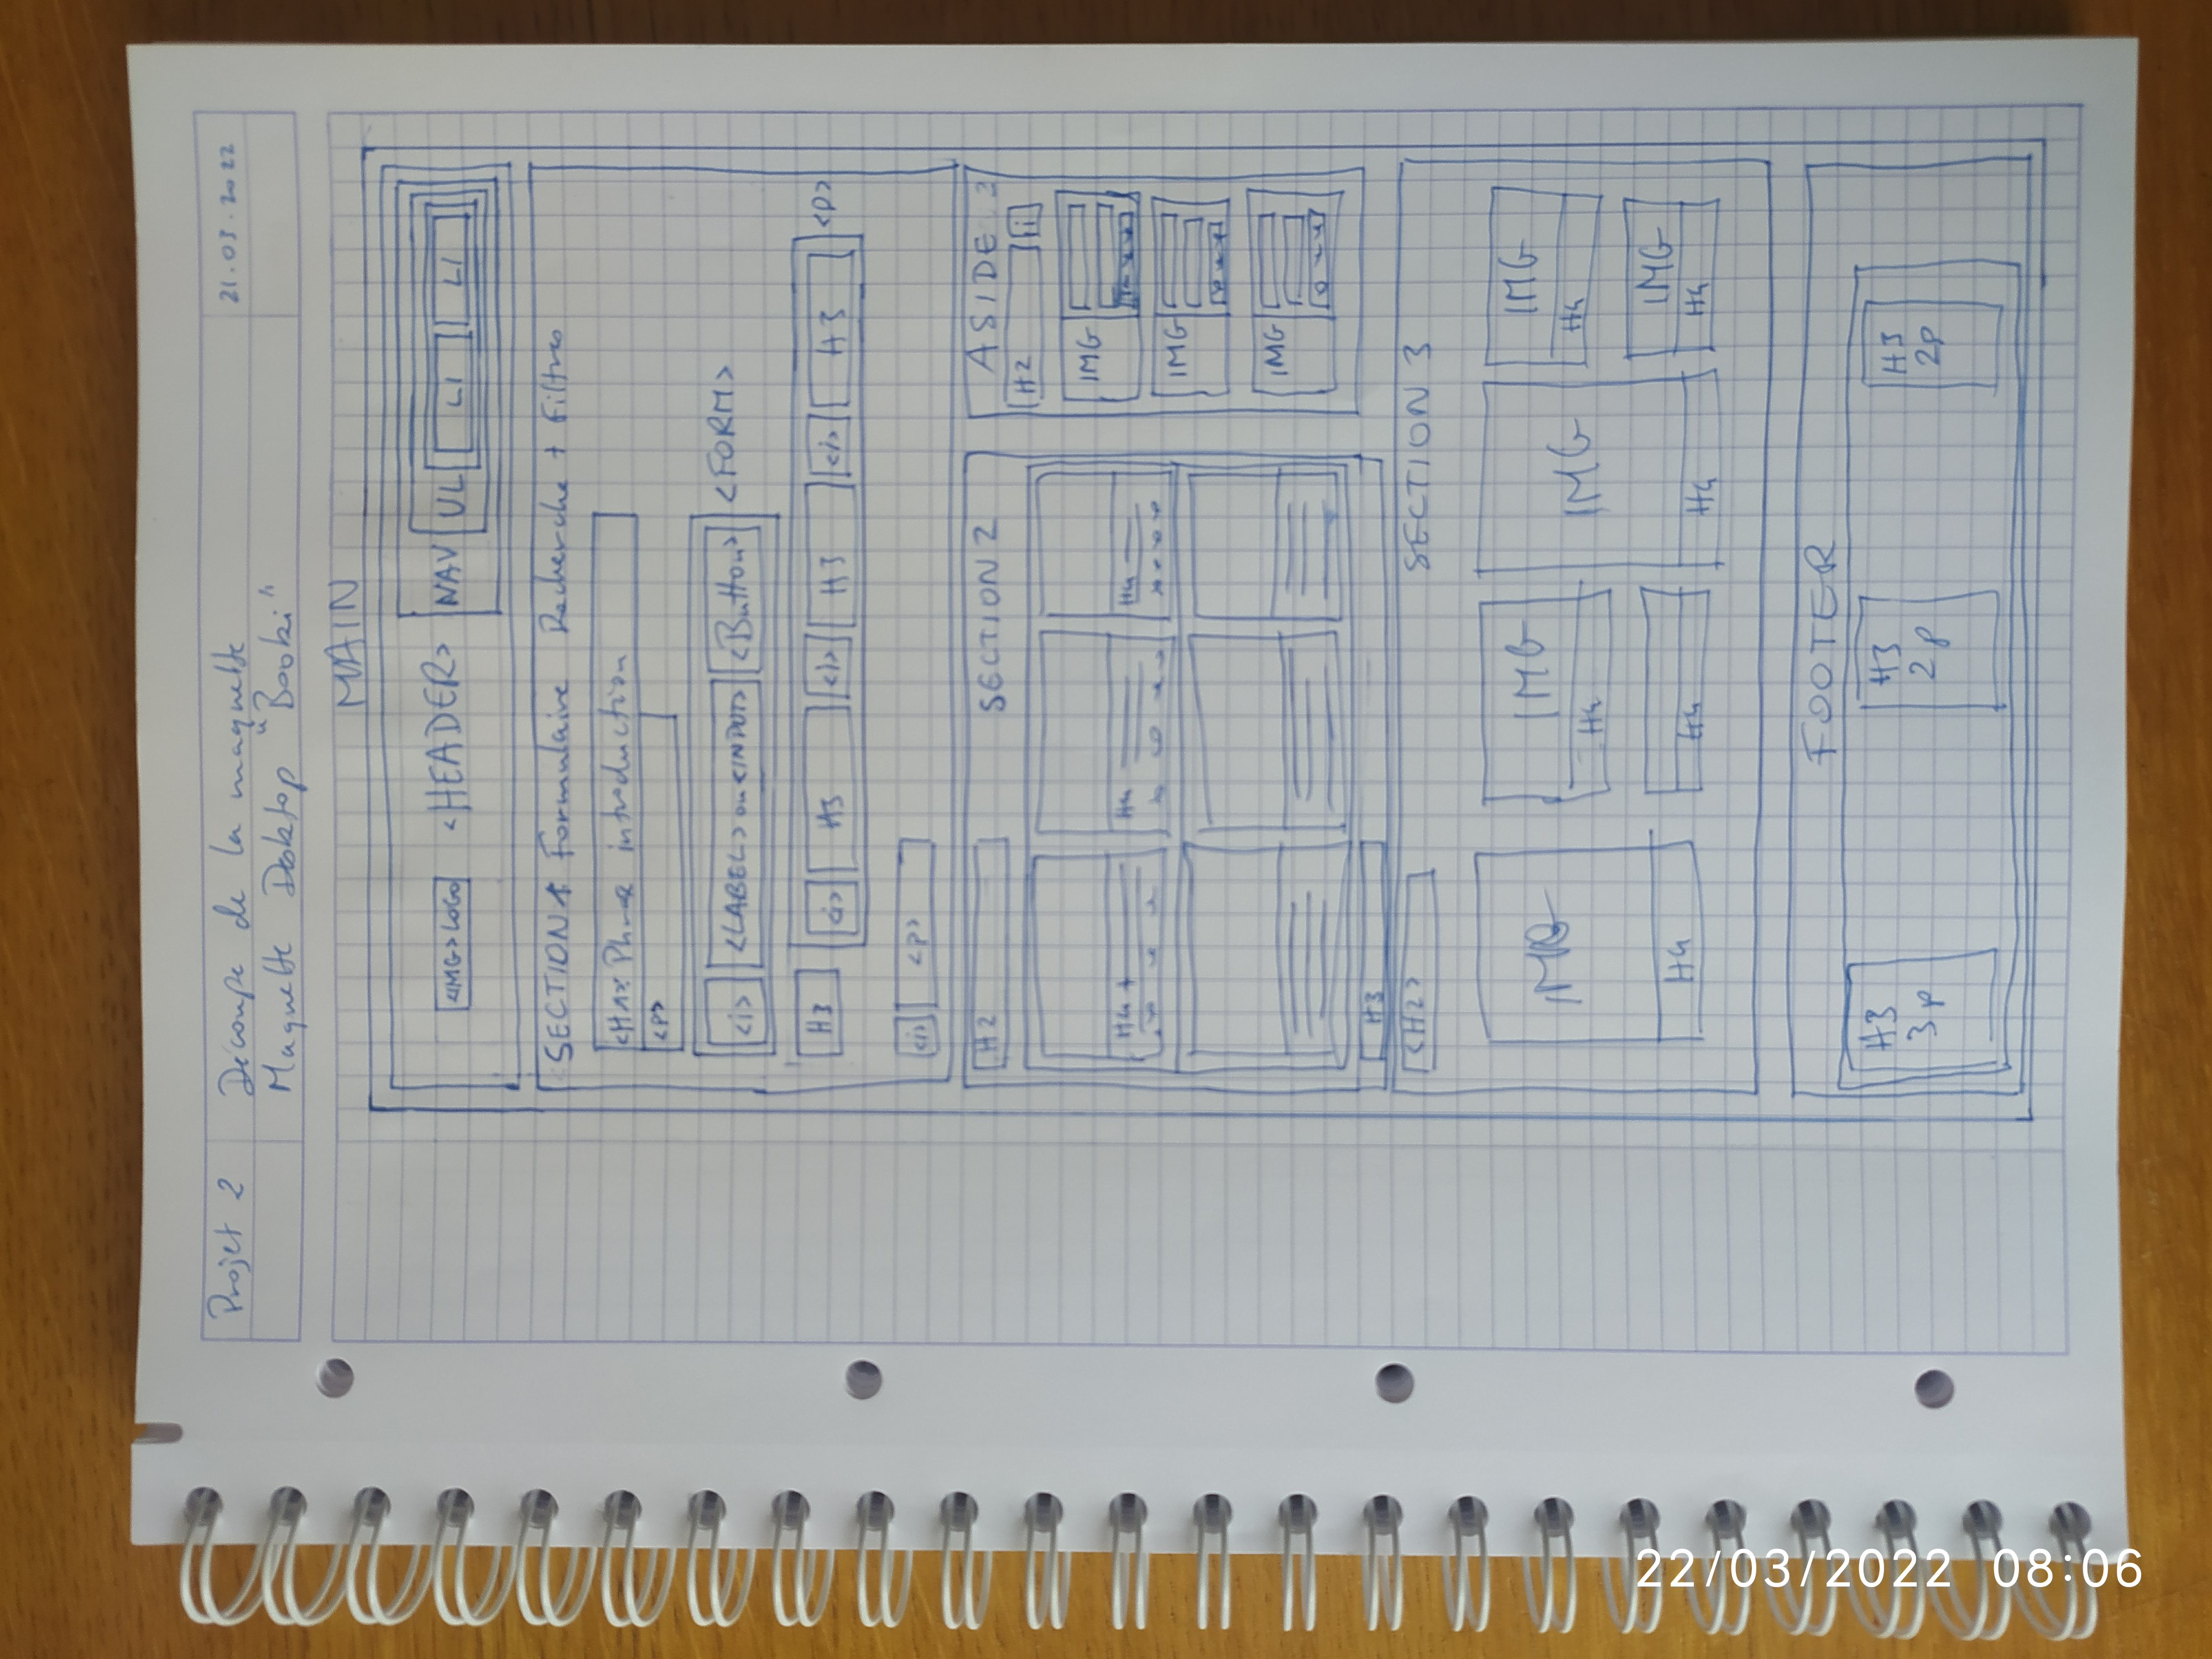 Projet 2
Découpe de la maquette
21.03.2022
Maquette Desktop "Booki"
MAIN
<IMG> LOGO <HEADER> NAV UL LI LI
SECTION 1 Formulaire Recherche + Filtres
<H1> Phrase introduction
<p>
<i> <LABEL> ou <INPUT> <Button> <FORM>
H3 <i> H3 <i> H3 <i> H3 <p>
<i> <p>
H2 SECTION 2
H4 H4 H4
H3
ASIDE
H2 i
IMG
IMG
IMG
<H2> SECTION 3
IMG IMG IMG IMG
H4 H4
IMG
H4 H4 H4 H4
FOOTER
H3 H3 H3
3p 2p 2p
22/03/2022 08:06